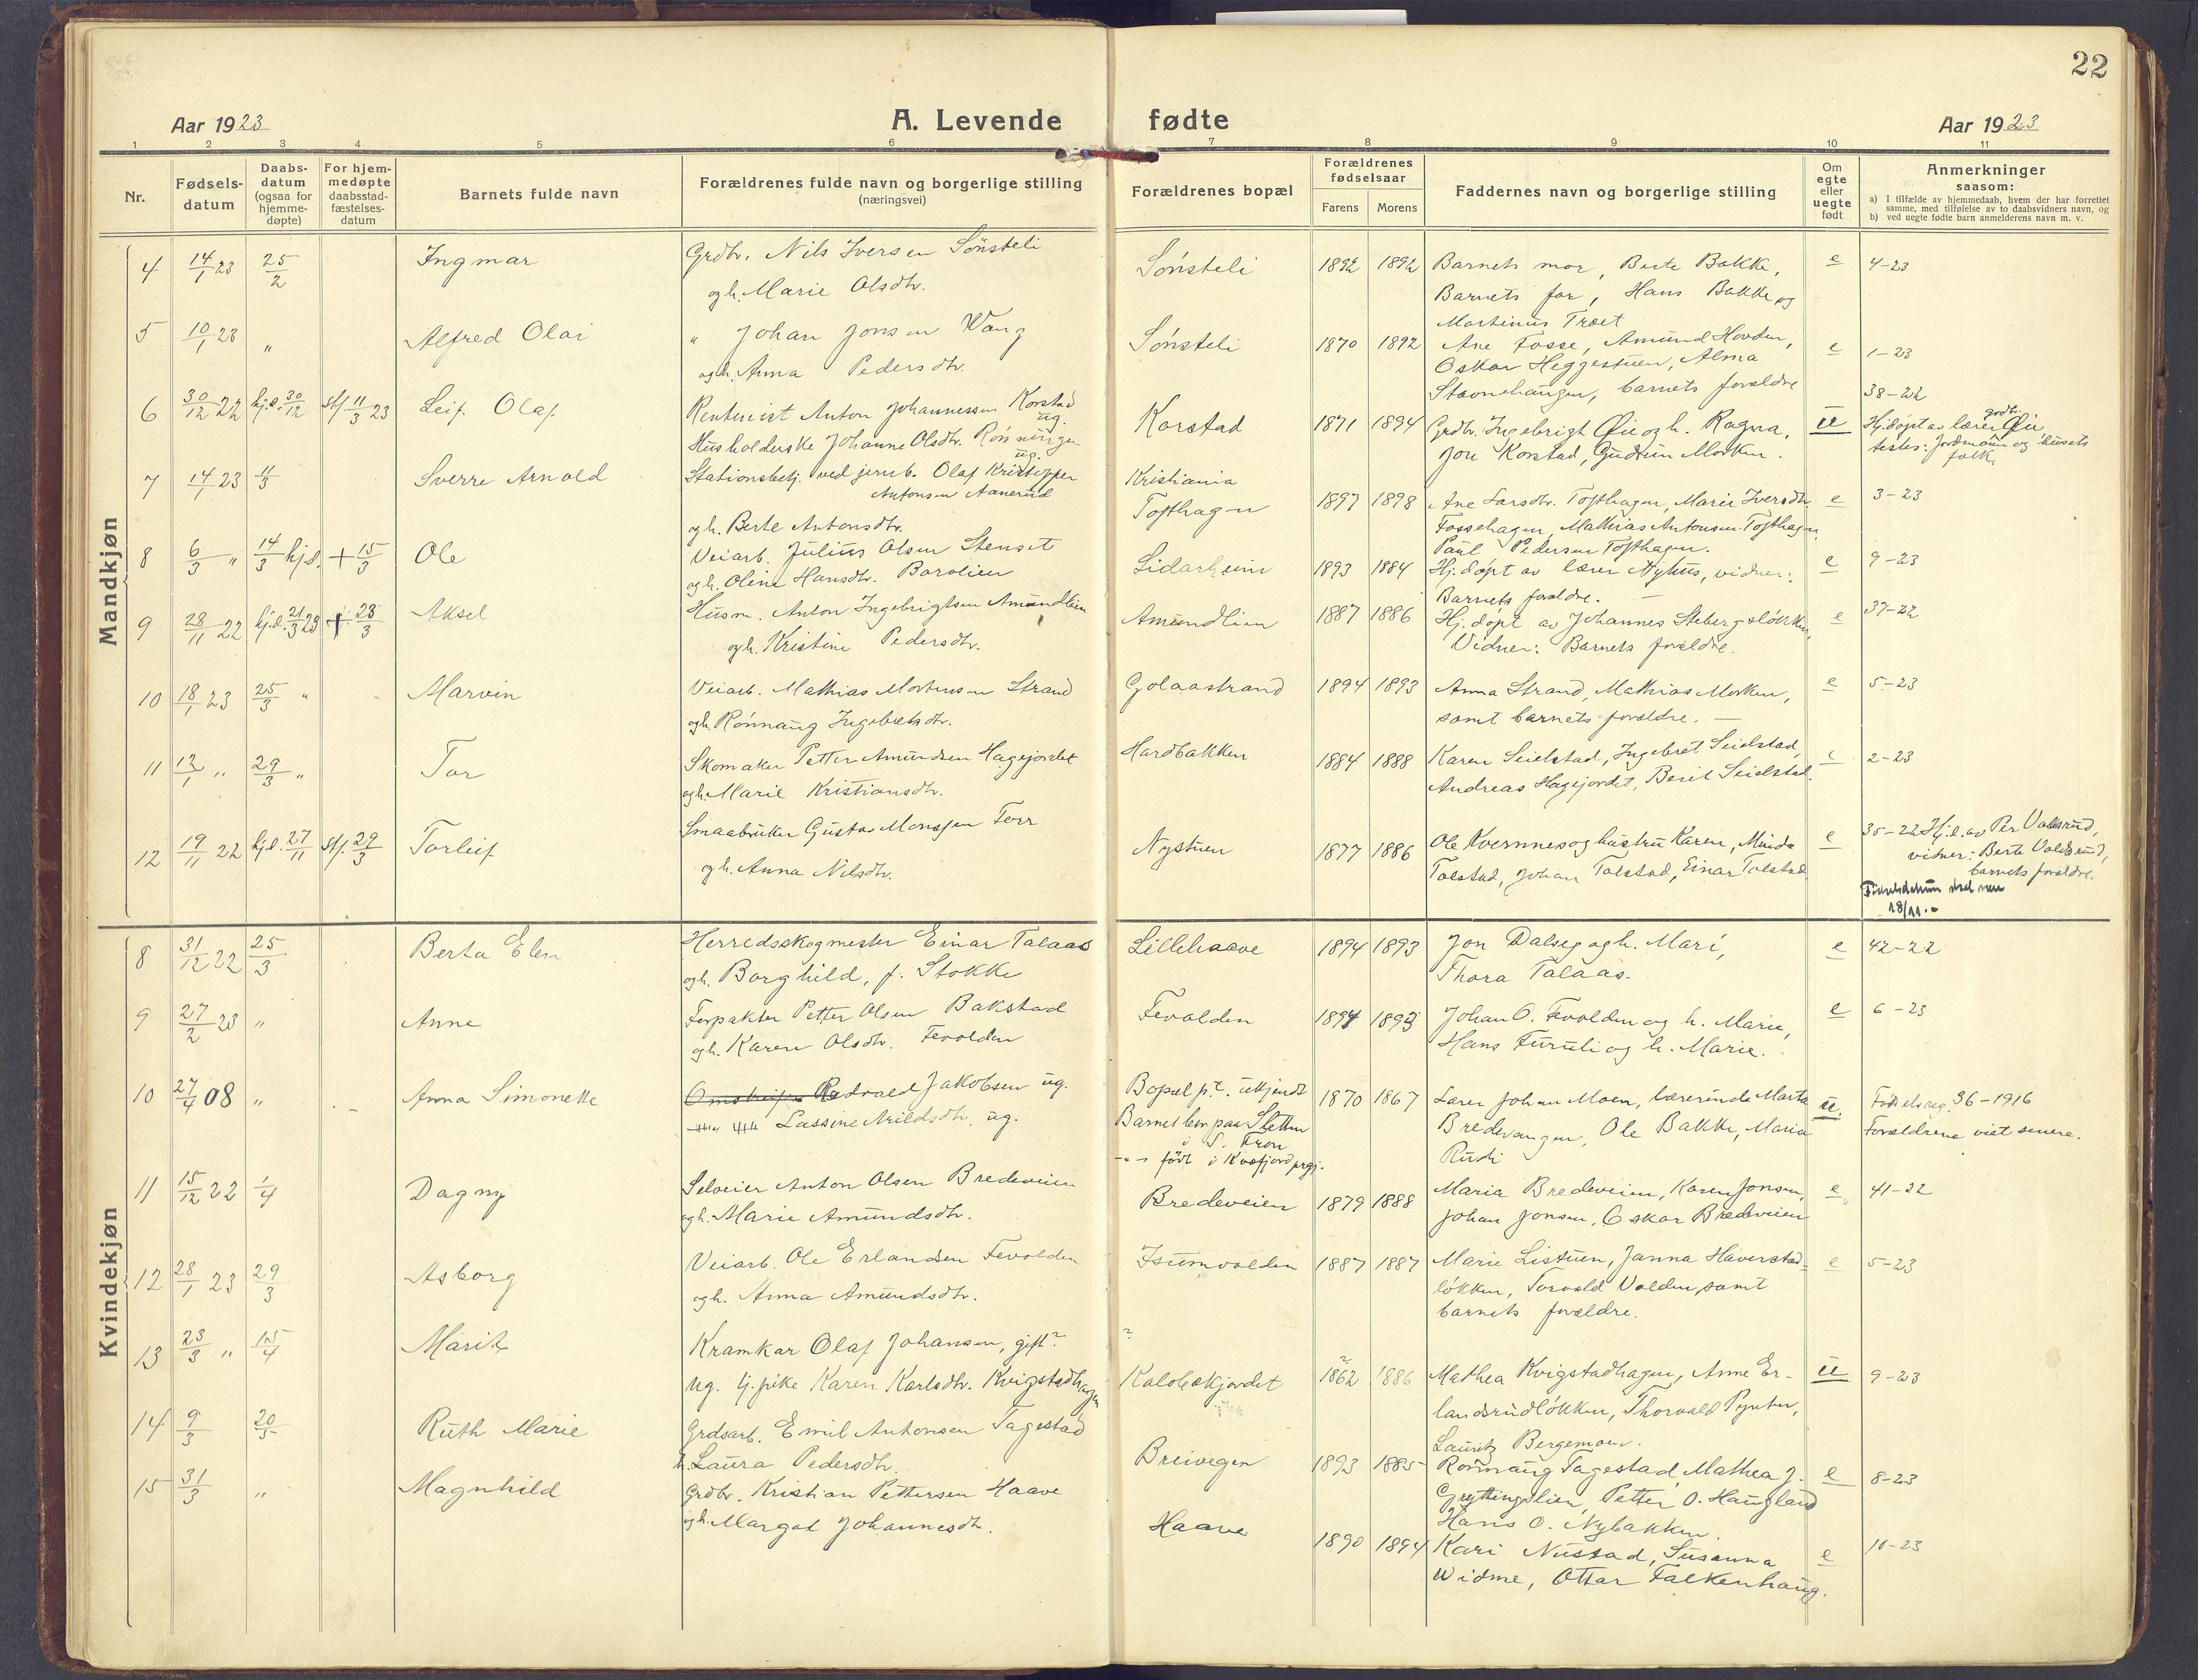 22
Aar 1923
A. Levende
fødte
Aar 1923
1 2 3 4 5 6 7 8 9 10 11
Nr.
Fødsels-
datum
Daabs-
datum
(ogsaa for
hjemme-
døpte)
For hjem-
medøpte
daabsstad-
fæstelses-
datum
Barnets fulde navn
Forældrenes fulde navn og borgerlige stilling
(næringsvei)
Forældrenes bopæl
Forældrenes
fødselsaar
Farens Morens
Faddernes navn og borgerlige stilling
Om
egte
eller
uegte
født
Anmerkninger
saasom:
a) I tilfælde av hjemmedaab, hvem der har forrettet
samme, med tilføielse av to daabsvidners navn, og
b) ved uegte fødte barn anmelderens navn m. v.
Mandkjøn
4 14/1 23 25/2 Ingmar Grdbr. Nils Iversen Sønsteli Sønsteli 1892 1892 Barnets mor, Berte Bakke, e 4-23
ogh. Marie Olsdtr. Barnets far, Hans Bakke og
Martinus Træet
5 10/1 23 " Alfred Olai " Johan Jonsen Wang Sønsteli 1870 1892 Ane Fosse, Amund Hovden, e 1-23
ogh. Anna Pedersdtr. Oskar Heggestuen, Alma
Stavnehaugen, barnets forældre
6 30/12 22 hj.d. 30/12 stf. 11/3 23 Leif Olaf Rentenist Anton Johannessen Korstad ug. Korstad 1871 1894 Grdbr. Ingebrigt Øie ogh. Ragna, u 38-22
Husholderske Johanne Olsdtr. Rønningen ug. Jon Korstad, Gudrun Morken. Hj.døpt av lærer Øie
testes: Jordmoren og husets
folk.
7 14/1 23 11/3 Sverre Arnold Stationsbetj. ved jernb. Olaf Kristoffer Kristiania
Antonsen Aanerud Tofthagen 1897 1898 Ane Larsdtr. Tofthagen, Marie Iversdtr. e 3-23
ogh. Berte Antonsdtr. Fossehagen, Mathias Antonsen Tofthagen,
Paul Pedersen Tofthagen.
8 6/3 " 14/3 hj.d. + 15/3 Ole Veiarb. Julius Olsen Stenset Lidarheim 1893 1884 Hj.døpt av lærer Nyhus, vidner: e 9-23
ogh. Oline Hansdtr. Barolien Barnets forældre.
9 28/11 22 hj.d. 21/3 23 + 23/3 Aksel Husm. Anton Ingebrigtsen Amundlien Amundlien 1887 1886 Hj.døpt av Johannes Stebergsløkken, e 37-22
ogh. Kristine Pedersdtr. Vidner: Barnets forældre.
10 18/1 23 25/3 " Marvin Veiarb. Mathias Mortensen Strand Golaastrand 1894 1893 Anna Strand, Mathias Morken, e 5-23
ogh. Rønnaug Ingebretsdtr. samt barnets forældre.
11 12/1 " 29/3 " Tor Skomaker Petter Amundsen Hagejordet Hardbakken 1884 1888 Karen Seielstad, Ingebret Seielstad, e 2-23
ogh. Marie Kristiansdtr. Andreas Hagejordet, Berit Seielstad.
12 19/11 22 hj.d. 27/11 stf. 29/3 Torleif Smaabruker Gustav Monssen Forr Nystuen 1877 1886 Ole Kvernnes og hustru Karen, Minda e 35-22 Hj.d. av Per Valdsrud,
ogh. Anna Nilsdtr. Tolstad, Johan Tolstad, Einar Tolstad vitner: Berte Voldsrud,
barnets forældre.
Fødselsdatum skal være
18/11.
Kvindekjøn
8 31/12 22 25/3 Berta Elen Herredsskogmester Einar Talaas Lillehaave 1894 1893 Jon Dalseg ogh. Mari, e 42-22
ogh. Borghild, f. Stokke Thora Talaas.
9 27/2 23 " Anne Forpakter Petter Olsen Bakstad Fevolden 1894 1893 Johan O. Fevolden og h. Marie, e 6-23
ogh. Karen Olsdtr. Fevolden Hans Furuli og h. Marie.
10 27/4 08 " Anna Simonette Redvald Jakobsen ug. Bopæl p.t. ukjendt 1870 1867 Lærer Johan Moen, lærerinde Marta u. Fødselsreg. 36-1916
Lassine Arildsdtr. ug. Barnet bor paa Sletten Bredevangen, Ole Bakke, Maria Forældrene viet senere.
i S. Fron Rudi
-"- født i Kvæfjord prgj.
11 15/12 22 1/4 Dagny Selveier Anton Olsen Bredeveien Bredeveien 1879 1888 Maria Bredeveien, Karen Jonsen, e 41-22
ogh. Marie Amundsdtr. Johan Jonsen, Oskar Bredeveien
12 28/1 23 29/3 Asborg Veiarb. Ole Erlandsen Fevolden Isumvolden 1887 1887 Marie Listuen, Janna Haverstad- e 5-23
ogh. Anna Amundsdtr. løkken, Torvald Volden, samt
barnets forældre.
13 23/3 " 15/4 Marit Kramkar Olaf Johansen, gift? ?
ug. tj.pike Karen Karlsdtr. Kvigstadhagen Kalobekjordet ? 1862 1886 Mathea Kvigstadhagen, Anne Er- u 9-23
landsrudløkken, Thorvald Pynten,
Lauritz Bergemoen.
14 9/3 20/5 Ruth Marie Grdsarb. Emil Antonsen Tagestad Breivegen 1893 1885 Rønnaug Tagestad, Mathea J. e 8-23
h. Laura Pedersdtr. Gryttingslien, Petter O. Haugland
Hans O. Nybakken.
15 31/3 " Magnhild Grdbr. Kristian Pettersen Haave Haave 1890 1894 Kari Nustad, Susanna e 10-23
ogh. Margot Johannesdtr. Widme, Ottar Falkenhaug.